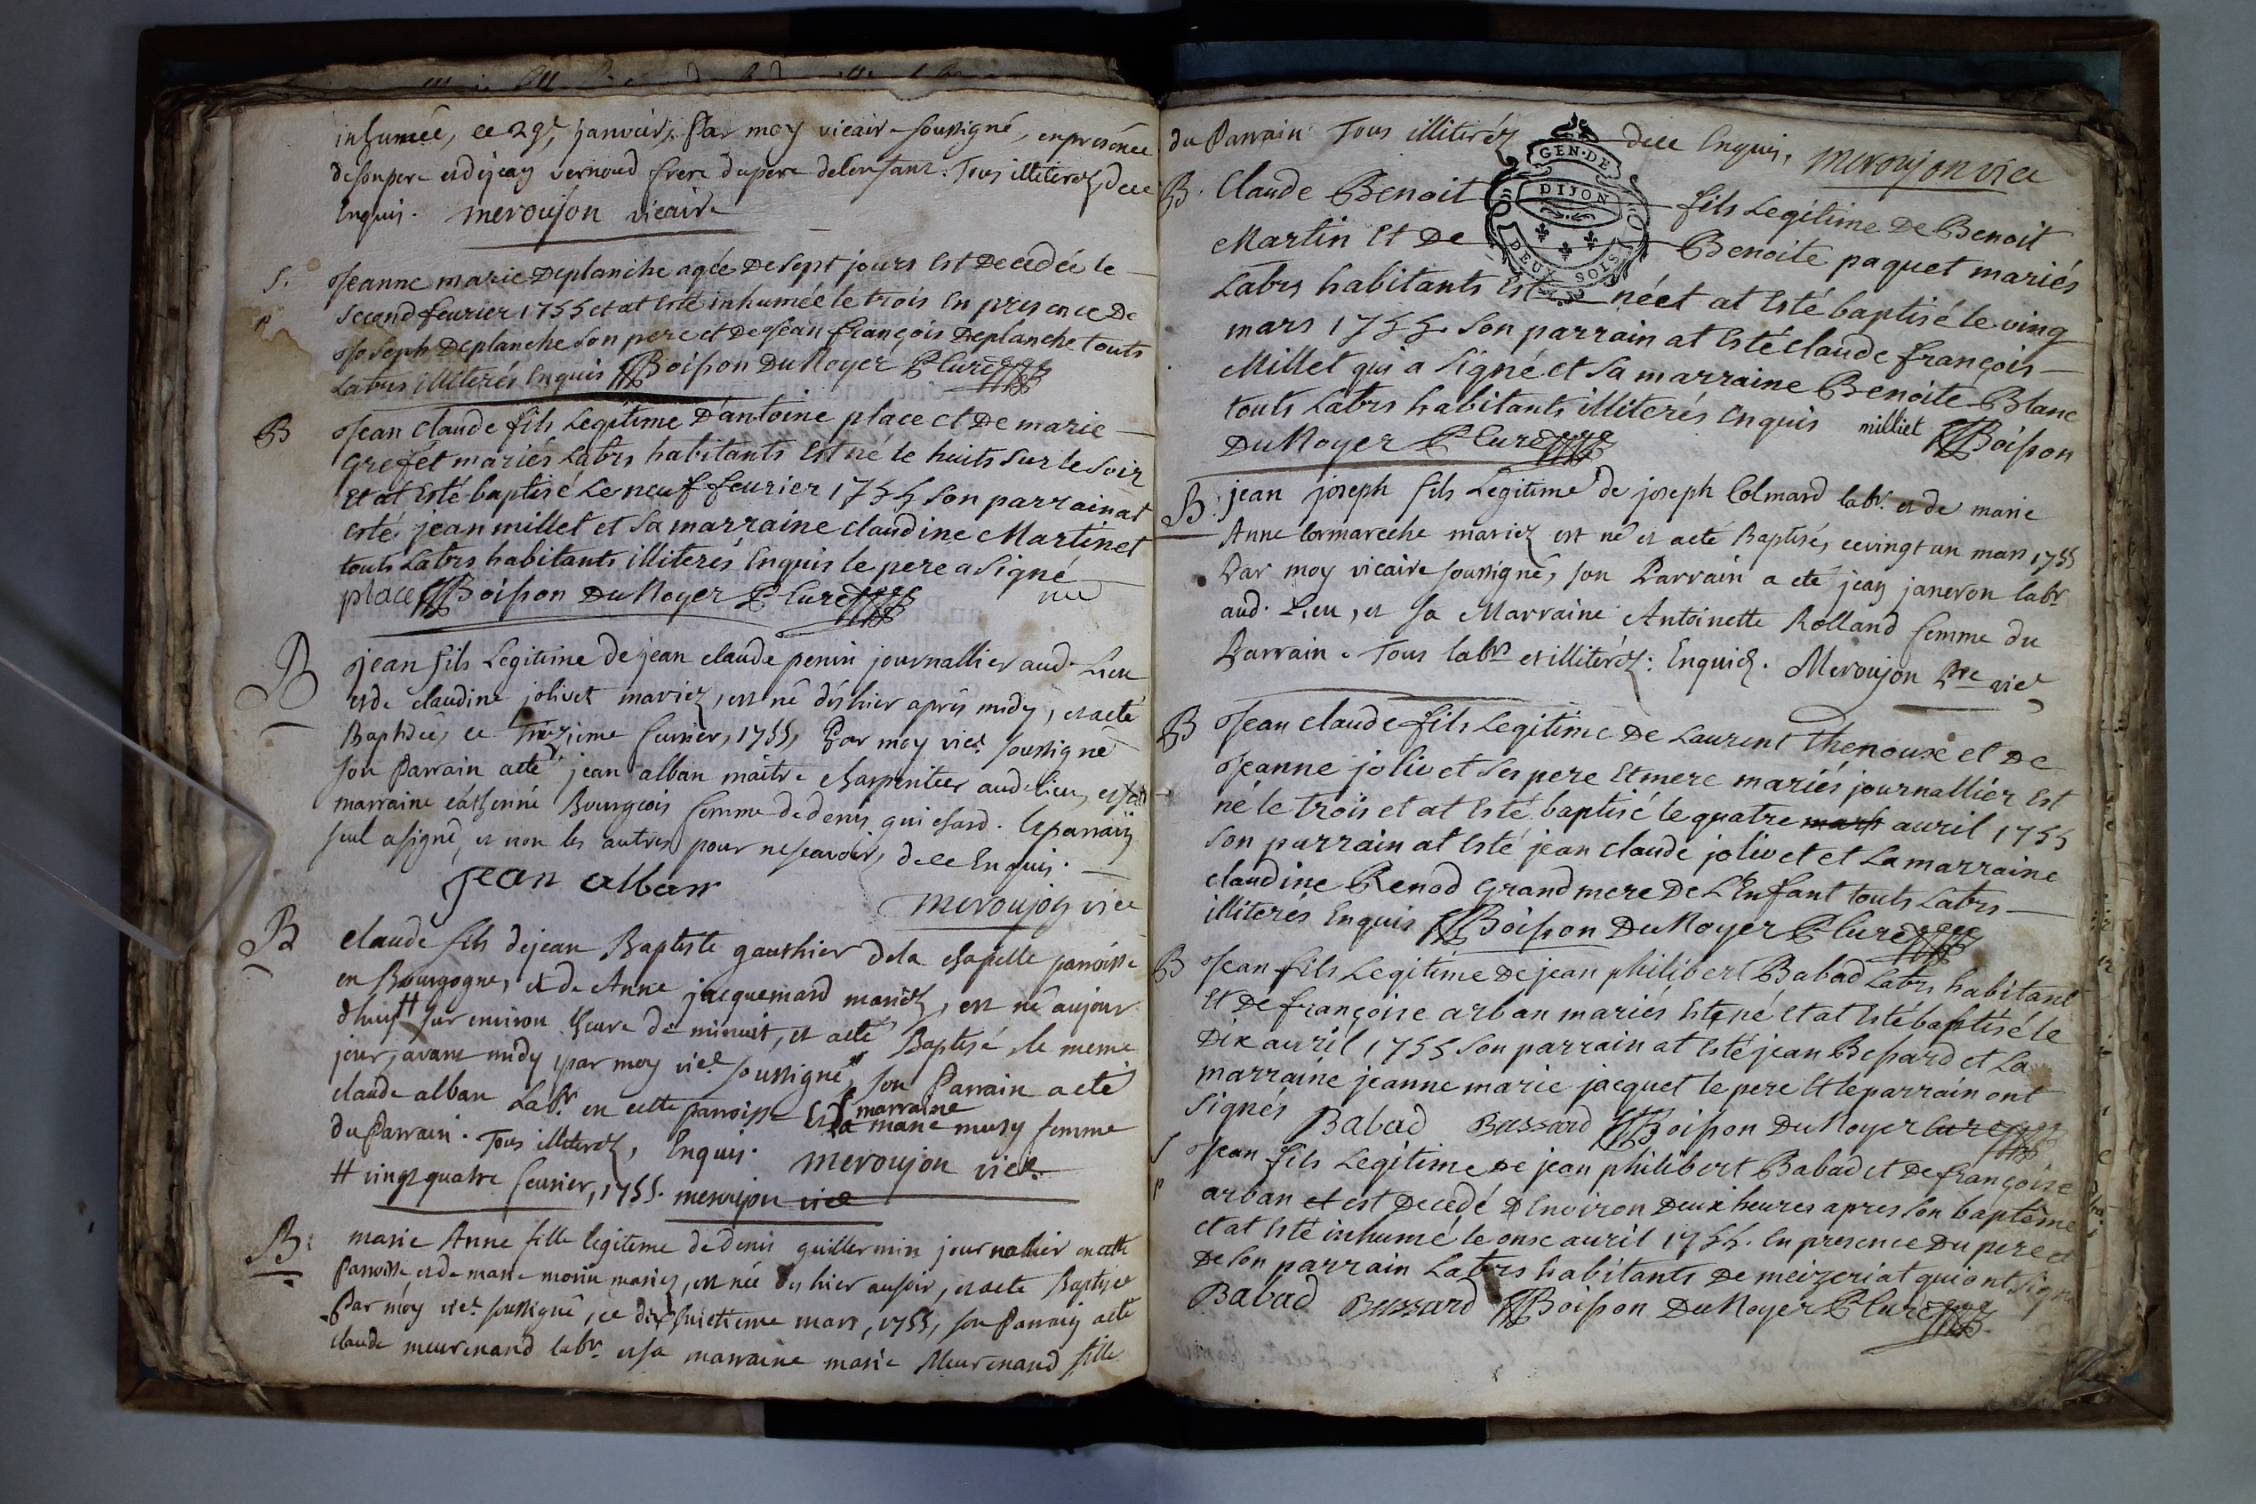 inhumée, ce 29e janvier, Par moy vicaire soussigné, en présence
de son pere et de jean vernoud frere du pere de lenfant. Tous illiterez, de ce
Enquis. meroujon vicaire
S. Jeanne marie Deplanche agée De sept jours Est Decedée le
second feurier 1755 et at Esté inhumée le trois En presence De
Joseph Deplanche son pere et De Jean françois Deplanche touts
Labrs illiterés Enquis Boisson Du Noyer P Curé
B Jean Claude fils Legitime D'antoine place et De marie
Grefet mariés Labrs habitants Est né le huits sur le soir
Et at Esté baptisé Le neuf feurier 1755 son parrain at
esté jean millet et sa marraine claudine Martinet
touts Labrs habitants illiterés Enquis le pere a signé
place Boisson Du Noyer P Curé
B jean fils Legitime de jean claude penin journallier aud. Lieu
et de claudine jolivet mariez, est né dès hier après midy, et a eté
Baptisé, ce treizieme feurier, 1755, Par moy vice. soussigné
son Parrain a eté jean alban maitre charpentier aud. lieu, et sa
marraine Bourgeois femme de denis guichard. le parrain
seul a signé, et non les autres pour ne scavoir, de ce Enquis.
jean alban
meroujon vice
B claude fils de jean Baptiste gauthier de la chapelle parroisse
en Bourgogne, et de Anne jacquemard mariez, est né aujour
dhuy # sur environ heure de minuit, et a eté Baptisé, le meme
jour, avant midy par moy vice. soussigné, son Parrain a eté
claude alban Labr. en cette parroisse Et sa marraine marie musy femme
du Parrain. Tous illiterez, Enquis. meroujon vice.
# vingt quatre feurier, 1755. meroujon vice
B: marie Anne fille legitime de denis guillermin journallier en cette
Parroisse et de marie morin mariez, est née des hier au soir, et a eté Baptisée
Par moy vice. soussigné, ce dix huictieme mars, 1755, son Parrain a eté
claude meurenand labr. et sa marraine marie Meurenand fille
du Parrain Tous illiterez de ce Enquis, meroujon vice
GEN. DE
DIJON
DEUX SOLS
B. Claude Benoit fils Legitime De Benoit
Martin Et De Benoite paquet mariés
Labrs habitants Est né et at Esté baptisé le vinq
mars 1755. son parrain at Esté claude françois
Millet qui a signé et sa marraine Benoite Blanc
touts Labrs habitants illiterés Enquis milliet Boisson
Du Noyer P Curé
B. jean joseph fils Legitime de joseph Colmard labr. et de marie
Anne Cormareche mariez est né et a eté Baptisé, ce vingt un mars 1755
Par moy vicaire soussigné, son Parrain a eté jean janeron labr
aud. Lieu, et sa Marraine Antoinette Rolland femme du
Parrain. Tous labrs et illiterez. Enquis. Meroujon Ptre vice
B Jean claude fils Legitime De Laurent Thenoux et De
Jeanne jolivet ses pere Et mere mariés journallier Est
né le trois et at Esté baptisé le quatre mars auril 1755
son parrain at Esté jean claude jolivet et La marraine
claudine Renod grand mere De L'Enfant touts Labrs
illiterés Enquis Boisson Du Noyer P Curé
B Jean fils Legitime De jean philibert Babad Labrs habitant
Et De françoise arban mariés Est né et at Esté baptisé le
Dix auril 1755 son parrain at Esté jean Bessard et La
marraine jeanne marie jacquet le pere Et le parrain ont
signés Babad Bassard Boisson Du Noyer Curé
S Jean fils Legitime De jean philibert Babad et De françoise
P arban et est Decedé D Environ Deux heures apres son baptême
et at Esté inhumé le onse auril 1755. En presence Du pere et
De son parrain Labrs habitants De meizeriat qui ont signé
Babad Bassard Boisson Du Noyer P Curé